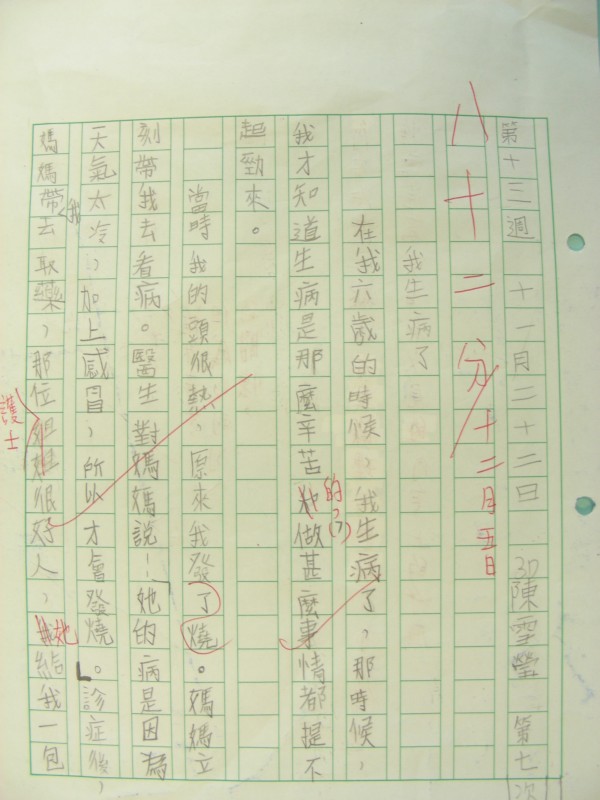 第十三週 十一月二十二日 3D陳雪瑩 第七次
八十二分 十二月五日
我生病了
在我六歲的時候，我生病了，那時候，
我才知道生病是那麼辛苦的，(7)做甚麼事情都提不
起勁來。
當時我的頭很熱，原來我發了燒。媽媽立
刻帶我去看病。醫生對媽媽說：「她的病是因為
天氣太冷，加上感冒，所以才會發燒。」診症後，
媽媽帶我去取藥，那位姐姐很好人，她給我一包
護士